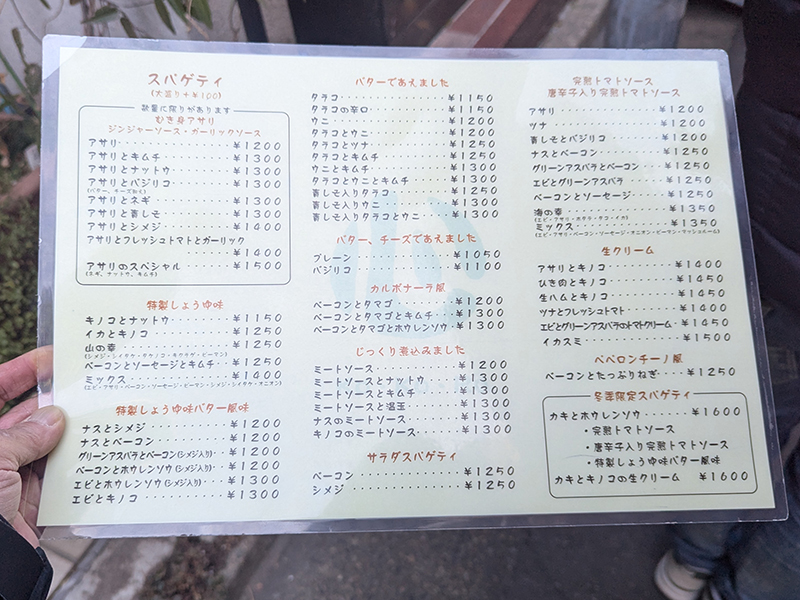 スパゲティ
(大盛り+¥100)
数量に限りがあります
むき身アサリ
ジンジャーソース・ガーリックソース
アサリ ¥1200
アサリとキムチ ¥1300
アサリとナットウ ¥1300
アサリとバジリコ ¥1300
(バター、チーズぬく)
アサリとネギ ¥1300
アサリと青しそ ¥1300
アサリとシメジ ¥1400
アサリとフレッシュトマトとガーリック
¥1400
アサリのスペシャル ¥1500
(ネギ、ナットウ、キムチ)
特製しょうゆ味
キノコとナットウ ¥1150
イカとキノコ ¥1250
山の幸 ¥1250
(シメジ・シイタケ・タケノコ・キクラゲ・ピーマン)
ベーコンとソーセージとキムチ ¥1250
ミックス ¥1400
(エビ・アサリ・ベーコン・ソーセージ・ピーマン・シメジ・シイタケ・オニオン)
特製しょうゆ味バター風味
ナスとシメジ ¥1200
ナスとベーコン ¥1200
グリーンアスパラとベーコン(シメジ入り) ¥1200
ベーコンとホウレンソウ(シメジ入り) ¥1200
エビとホウレンソウ(シメジ入り) ¥1300
エビとキノコ ¥1300
バターであえました
タラコ ¥1150
タラコの辛口 ¥1150
ウニ ¥1200
タラコとウニ ¥1200
タラコとツナ ¥1250
タラコとキムチ ¥1250
ウニとキムチ ¥1300
タラコとウニとキムチ ¥1300
青しそ入りタラコ ¥1250
青しそ入りウニ ¥1300
青しそ入りタラコとウニ ¥1300
バター、チーズであえました
プレーン ¥1050
バジリコ ¥1100
カルボナーラ風
ベーコンとタマゴ ¥1200
ベーコンとタマゴとキムチ ¥1300
ベーコンとタマゴとホウレンソウ ¥1300
じっくり煮込みました
ミートソース ¥1200
ミートソースとナットウ ¥1300
ミートソースとキムチ ¥1300
ミートソースと温玉 ¥1300
ナスのミートソース ¥1300
キノコのミートソース ¥1300
サラダスパゲティ
ベーコン ¥1250
シメジ ¥1250
完熟トマトソース
唐辛子入り完熟トマトソース
アサリ ¥1200
ツナ ¥1200
青しそとバジリコ ¥1200
ナスとベーコン ¥1250
グリーンアスパラとベーコン ¥1250
エビとグリーンアスパラ ¥1250
ベーコンとソーセージ ¥1250
海の幸 ¥1350
(エビ・アサリ・ホタテ・タコ・イカ)
ミックス ¥1350
(エビ・アサリ・ベーコン・ソーセージ・オニオン・ピーマン・マッシュルーム)
生クリーム
アサリとキノコ ¥1400
ひき肉とキノコ ¥1450
生ハムとキノコ ¥1450
ツナとフレッシュトマト ¥1400
エビとグリーンアスパラのトマトクリーム ¥1450
イカスミ ¥1500
ペペロンチーノ風
ベーコンとたっぷりねぎ ¥1250
冬季限定スパゲティ
カキとホウレンソウ ¥1600
・完熟トマトソース
・唐辛子入り完熟トマトソース
・特製しょうゆ味バター風味
カキとキノコの生クリーム ¥1600